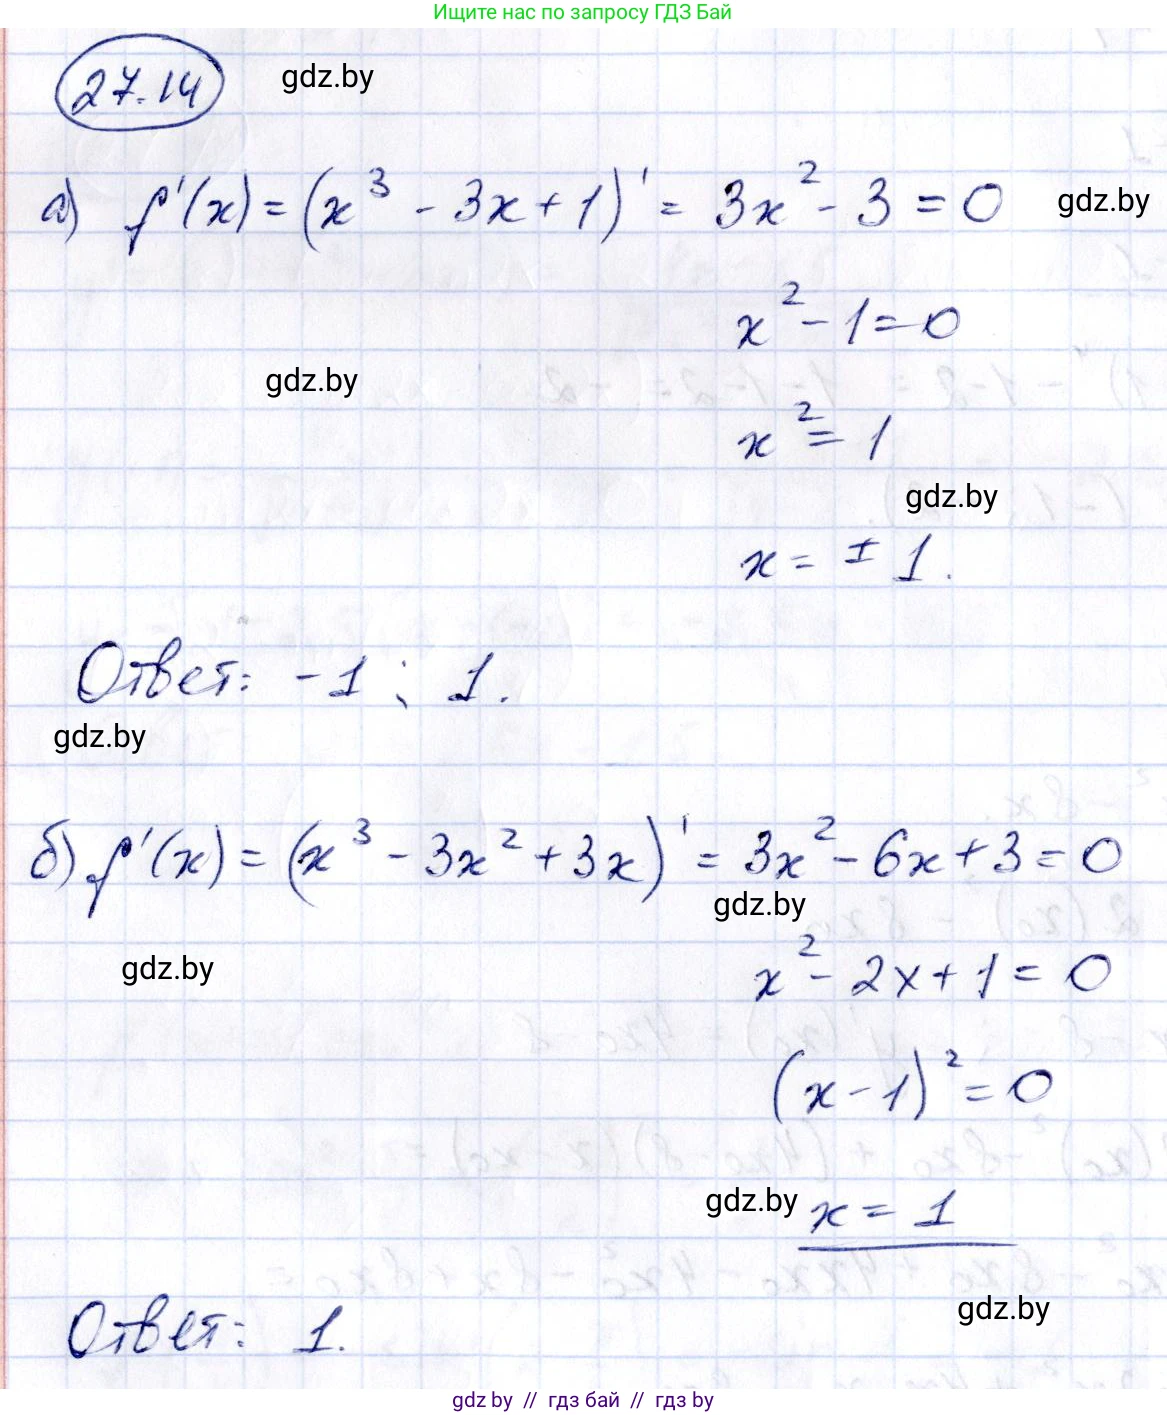 Ищите нас по запросу ГДЗ Бай
27.14
gdz.by
а) f'(x) = (x³ - 3x + 1)' = 3x² - 3 = 0
gdz.by
x² - 1 = 0
gdz.by
x² = 1
gdz.by
x = ± 1.
Ответ: -1 ; 1.
gdz.by
б) f'(x) = (x³ - 3x² + 3x)' = 3x² - 6x + 3 = 0
gdz.by
gdz.by
x² - 2x + 1 = 0
(x - 1)² = 0
gdz.by
x = 1
gdz.by
Ответ: 1.
gdz.by // гдз бай // гдз by